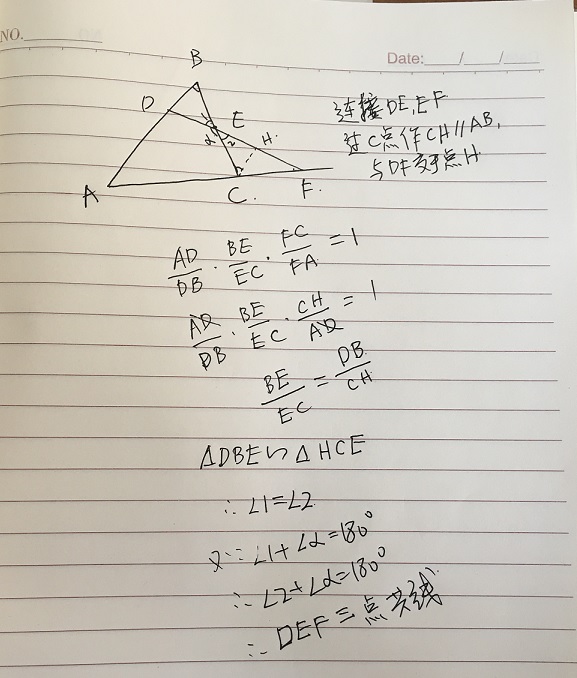 NO.
Date: / /
B
D
E
α
2
H.
A
C.
F.
连接DE,EF
过C点作CH//AB,
与DF交于点H
AD/DB · BE/EC · FC/FA = 1
AD/DB · BE/EC · CH/AD = 1
BE/EC = DB/CH
△DBE∽△HCE
∴ ∠1=∠2
又∵ ∠1+∠α=180°
∴ ∠2+∠α=180°
∴ DEF三点共线